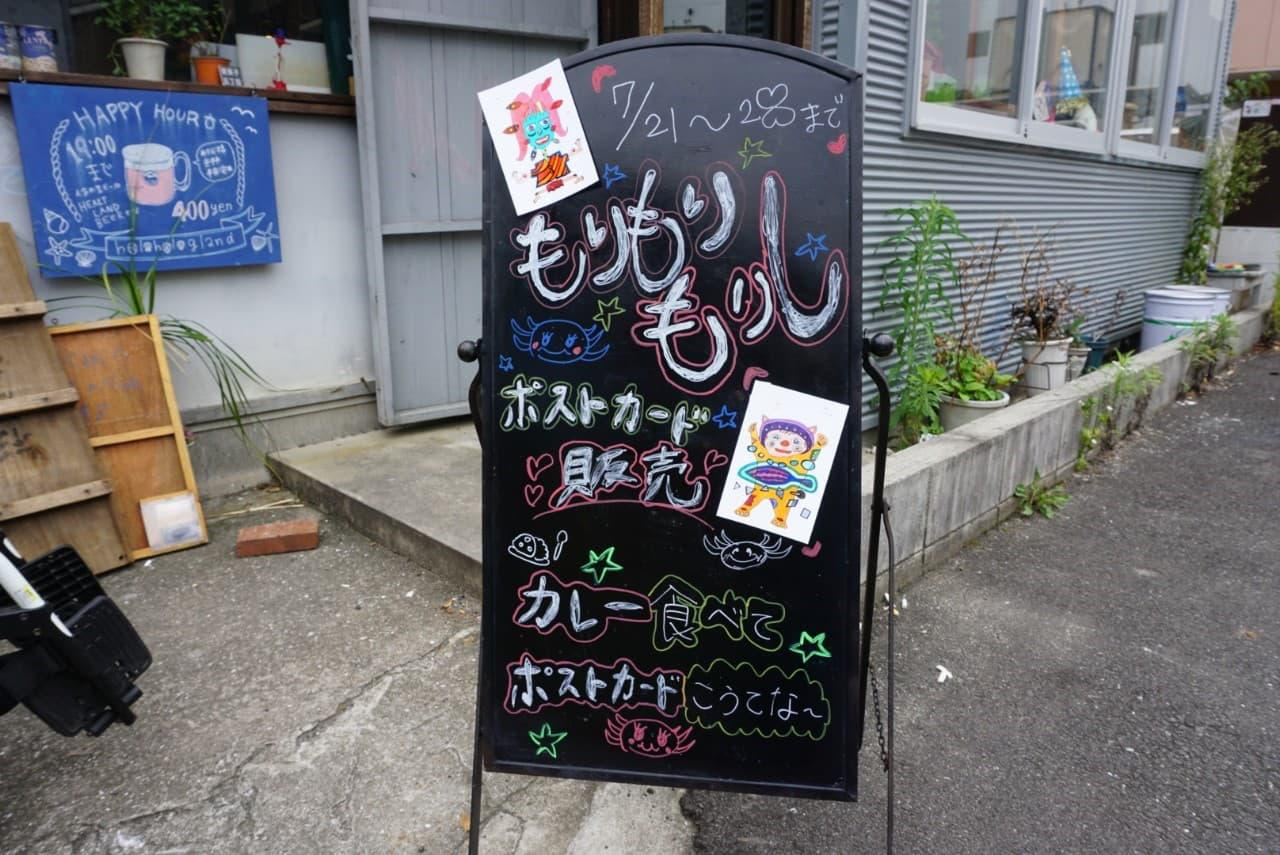 HAPPY HOUR
19:00
まで
HEART
LAND
BEER
400yen
helgoland
7/21〜28まで
もりもり
もりし
ポストカード
販売
カレー食べて
ポストカードこうてな〜